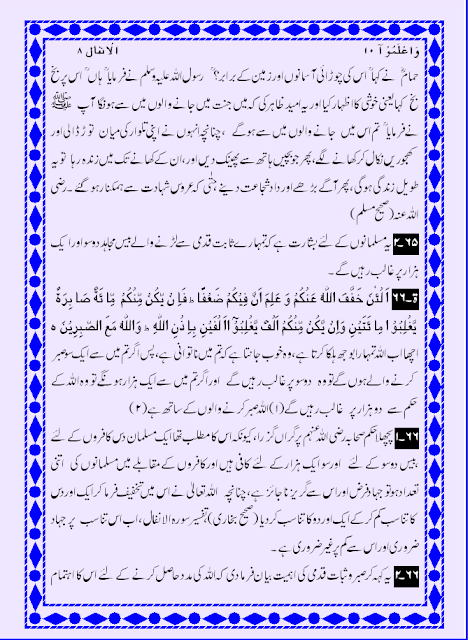 واعلموا ١٠ الانفال ٨
حمامؓ نے کہا "اس کی چوڑائی آسمانوں اور زمین کے برابر؟" رسول اللہ علیہ وسلم نے فرمایا "ہاں" اس پر بخ
بخ کہا یعنی خوشی کا اظہار کیا اور یہ امید ظاہر کی کہ میں جنت میں جانے والوں میں سے ہونگا آپ ﷺ
نے فرمایا "تم اس میں جانے والوں میں سے ہو گے، چنانچہ انہوں نے اپنی تلوار کی میان توڑ ڈالی اور
کھجوریں نکال کر کھانے لگے، پھر جو بچیں ہاتھ سے پھینک دیں اور، ان کے کھانے تک میں زندہ رہا تو یہ
طویل زندگی ہوگی، پھر آگے بڑھے اور داد شجاعت دینے حتٰی کہ عروس شہادت سے ہمکنار ہو گئے۔ رضی
اللہ عنہ (صحیح مسلم)
٦٥۔٢ یہ مسلمانوں کے لئے بشارت ہے کہ تمہارے ثابت قدمی سے لڑنے والے بیس مجاہد دو سو اور ایک سو ایک
ہزار پر غالب رہیں گے۔
ۃ۔٦٦ اَلْئٰنَ خَفَّفَ اللّٰہُ عَنْکُمْ وَ عَلِمَ اَنَّ فِیْکُمْ ضَعْفًا ط فَاِنْ یَّکُنْ مِّنْکُمْ مِّائَۃٌ صَابِرَۃٌ
یَّغْلِبُوْا مِائَتَیْنِ وَاِنْ یَّکُنْ مِّنْکُمْ اَلْفٌ یَّغْلِبُوْٓا اَلْفَیْنِ بِاِذْنِ اللّٰہِ ط وَاللّٰہُ مَعَ الصّٰبِرِیْنَ ہ
اچھا اب اللہ تمہارا بوجھ ہلکا کرتا ہے، وہ خوب جانتا ہے کہ تم میں ناتوانی ہے، پس اگر تم میں سے ایک سو صبر
کرنے والے ہوں گے تو وہ دو سو پر غالب رہیں گے اور اگر تم میں سے ایک ہزار ہونگے تو وہ اللہ کے
حکم سے دو ہزار پر غالب رہیں گے (١) اللہ صبر کرنے والوں کے ساتھ ہے (٢)
٦٦۔١ پچھلا حکم صحابہ رضی اللہ عنہم پر گراں گزرا، کیونکہ اس کا مطلب تھا ایک مسلمان دس کافروں کے لئے
،بیس دو سو کے لئے اور سو ایک ہزار کے لئے کافی ہیں اور کافروں کے مقابلے میں مسلمانوں کی اتنی
تعداد ہو تو جہاد فرض اور اس سے گریز نا جائز ہے، چنانچہ اللہ تعالٰی نے اس میں تخفیف فرما کر ایک اور دس
کا تناسب کم کر کے ایک اور دو کا تناسب کر دیا (صحیح بخاری) تفسیر سورہ الانفال، اب اس تناسب پر جہاد
ضروری اور اس سے کم پر غیر ضروری ہے۔
٦٦۔٢ یہ کہہ کر صبر و ثبات قدمی کی اہمیت بیان فرما دی کہ اللہ کی مدد حاصل کرنے کے لئے اس کا اہتمام